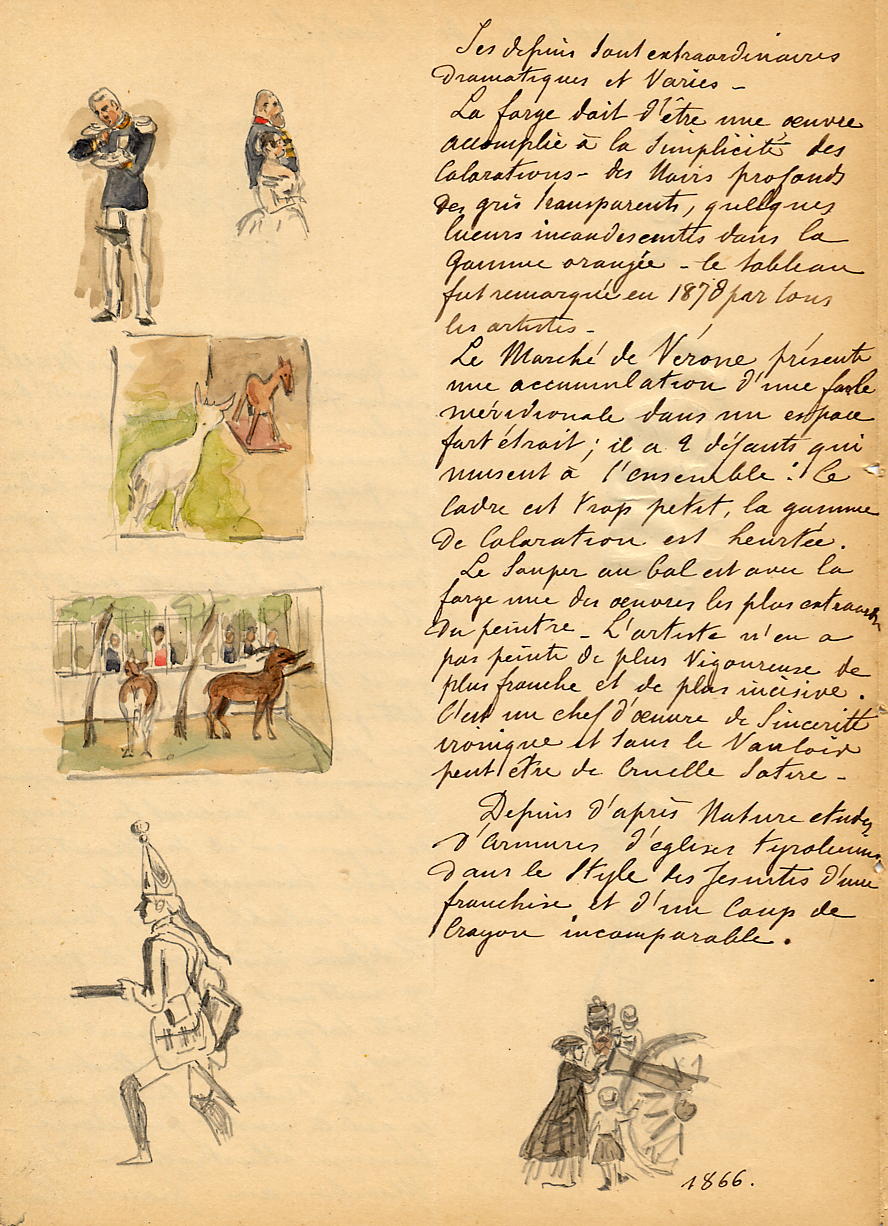 Ses dessins sont extraordinaires
dramatiques et variés -
La forge doit d'être une œuvre
accomplie à la simplicité des
colorations - des noirs profonds
des gris transparents, quelques
lueurs incandescentes dans la
gamme orangée - le tableau
fut remarqué en 1878 par tous
les artistes -
Le Marché de Verone présente
une accumulation d'une foule
méridionale dans un espace
fort étroit ; il a 2 défauts qui
nuisent à l'ensemble : le
cadre est trop petit, la gamme
de coloration est heurtée.
Le Souper au bal est avec la
forge une des œuvres les plus
du peintre - L'artiste n'en a
pas peinte de plus vigoureuse de
plus franche et de plus incisive.
C'est un chef d'œuvre de Sincerité
ironique et sans le vouloir
peut être de cruelle Satire -
Dessins d'après Nature etudes
d'armures d'églises tyroliennes
dans le Style des Jesuites d'une
franchise et d'un Coup de
Crayon incomparable.
1866.